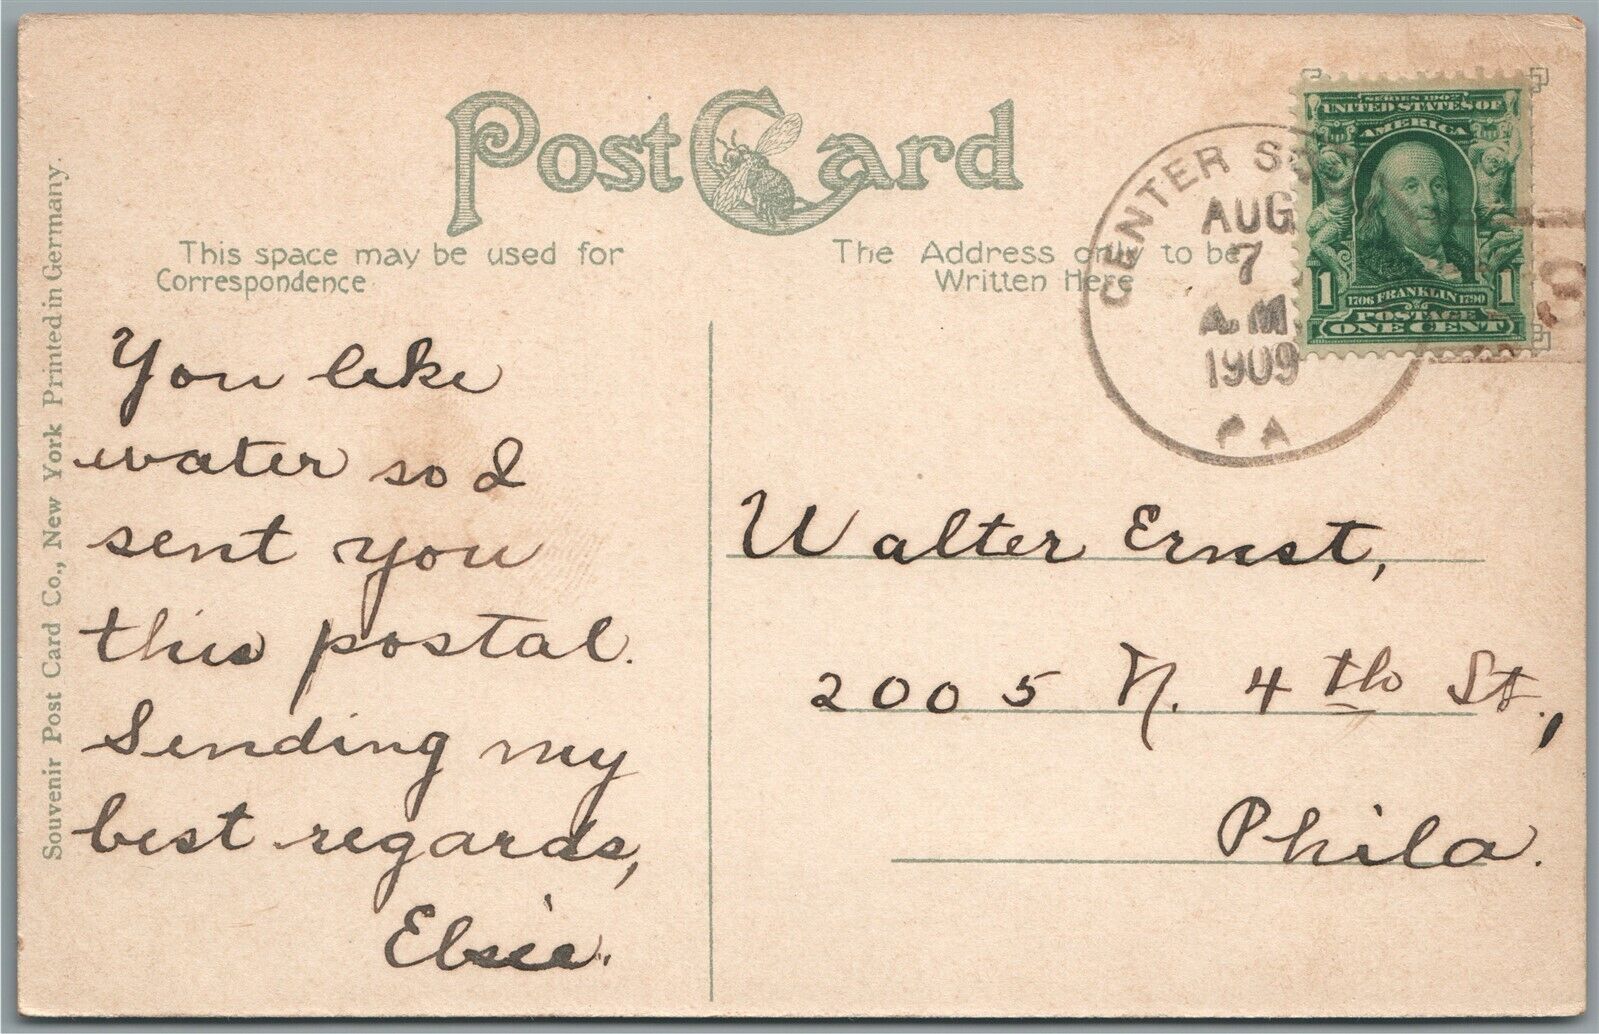 Post Card
This space may be used for
Correspondence
The Address only to be
Written Here
Souvenir Post Card Co., New York Printed in Germany.
CENTER
AUG
7
A.M.
1909
PA
SERIES 1902
UNITED STATES OF
AMERICA
1706 FRANKLIN 1790
1 1
POSTAGE
ONE CENT
You like
water so I
sent you
this postal.
Sending my
best regards,
Elsie.
Walter Ernst,
2005 N. 4th St.,
Phila.